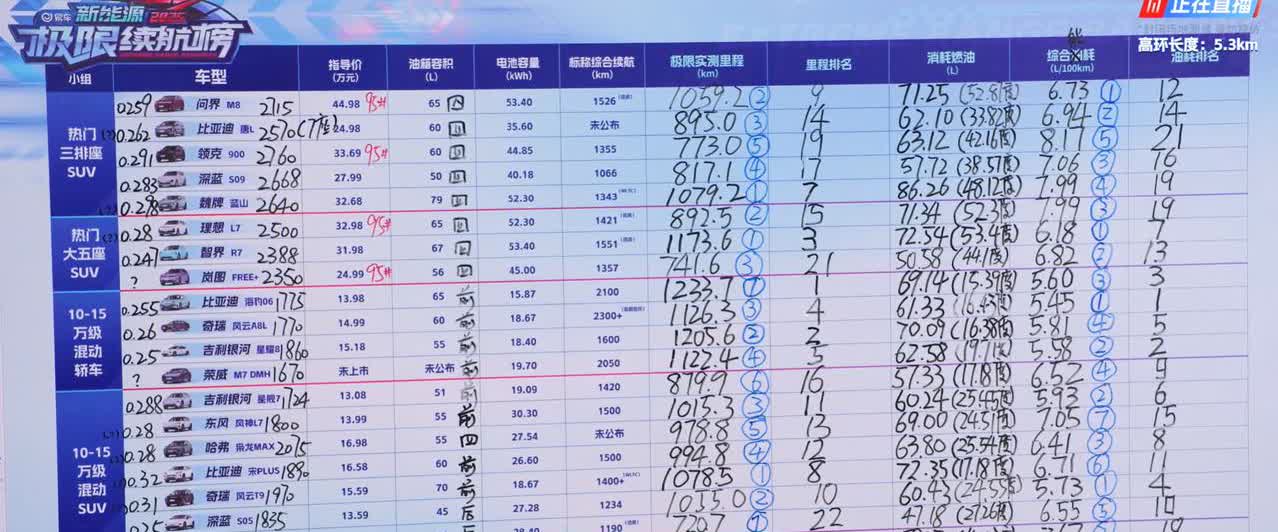 易车 新能源 2025
极限续航榜
正在直播
高环长度：5.3km
小组 车型 指导价（万元） 油箱容积（L） 电池容量（kWh） 标称综合续航（km） 极限实测里程（km） 里程排名 消耗燃油（L） 综合油耗（L/100km） 油耗排名
能
热门三排座SUV
0.259 问界 M8 2715 44.98 95# 65 四 53.40 1526 1059.2 ② 9 71.25 (52.8度) 6.73 ① 12
0.262 比亚迪 唐L 2570(7座) 24.98 60 四 35.60 未公布 895.0 ③ 14 62.10 (33.82度) 6.94 ② 14
0.291 领克 900 2760 33.69 95# 60 四 44.85 1355 773.0 ⑤ 19 63.12 (42.16度) 8.17 ⑤ 21
0.283 深蓝 S09 2668 27.99 50 四 40.18 1066 817.1 ④ 17 57.72 (38.57度) 7.06 ③ 16
0.298 魏牌 蓝山 2640 32.68 79 四 52.30 1343 (WLTC) 1079.2 ① 7 86.26 (48.12度) 7.99 ④ 19
热门大五座SUV
0.28 理想 L7 2500 32.98 95# 65 四 52.30 1421 892.5 ② 15 71.34 (52.3度) 7.99 ③ 19
0.247 智界 R7 2388 31.98 67 四 53.40 1551 1173.6 ① 3 72.54 (53.4度) 6.18 ① 7
? 岚图 FREE+ 2350 24.99 95# 56 四 45.00 1357 741.6 ③ 21 50.58 (44.1度) 6.82 ② 13
10-15万级混动轿车
0.255 比亚迪 海豹06 1775 13.98 65 前 15.87 2100 1233.7 ① 1 69.14 (15.39度) 5.60 ③ 3
0.26 奇瑞 风云A8L 1770 14.99 60 前 18.67 2300+ 1126.3 ③ 4 61.33 (16.43度) 5.45 ① 1
0.25 吉利银河 星耀8 1860 15.18 55 前 18.40 1600 1205.6 ② 2 70.09 (16.38度) 5.81 ④ 5
? 荣威 M7 DMH 1670 未上市 未公布 前 19.70 2050 1122.4 ④ 5 62.58 (19.71度) 5.58 ② 2
10-15万级混动SUV
0.288 吉利银河 星舰7 1724 13.08 51 前 19.09 1420 879.9 ⑥ 16 57.33 (17.18度) 6.52 ④ 9
0.28 东风 风神L7 1800 13.99 55 前 30.30 1500 1015.3 ③ 11 60.24 (25.45度) 5.93 ② 6
0.28 哈弗 枭龙MAX 2075 16.98 55 四 27.54 未公布 978.8 ⑤ 13 69.00 (24.51度) 7.05 ⑦ 15
0.32 比亚迪 宋PLUS 1890 16.58 60 前 26.60 1500 994.8 ④ 12 63.80 (25.54度) 6.41 ③ 8
0.31 奇瑞 风云T9 1970 15.59 70 前 18.67 1400+ (WLTC) 1078.5 ① 8 72.35 (17.18度) 6.71 ⑥ 11
深蓝 S05 1835 13.59 45 后 27.28 1234 1055.0 ② 10 60.43 (24.55度) 5.73 ① 4
28.40 1190 720.7 22 47.18 6.55 ⑤ 10